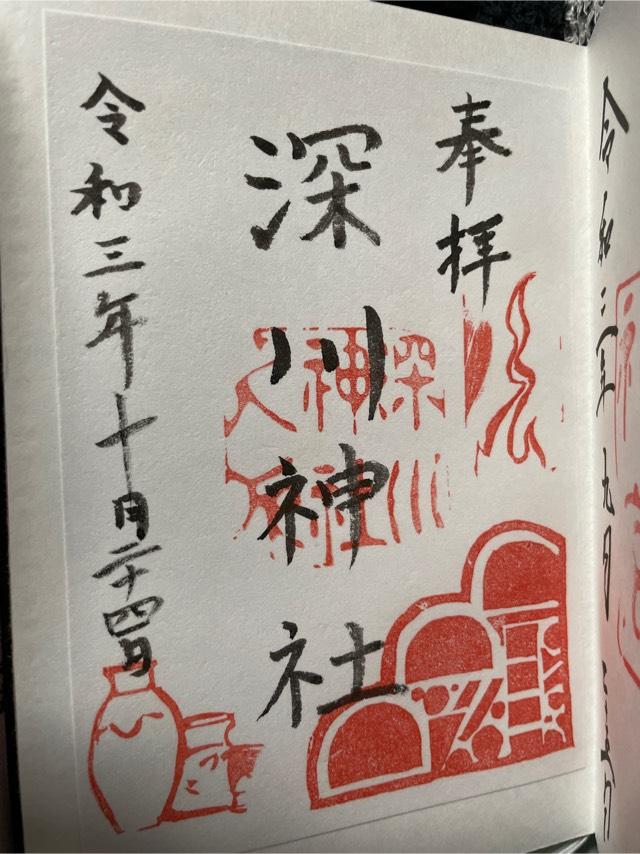 令和三年九月
奉拝
深川神社
深川
神社
令和三年十月二十四日